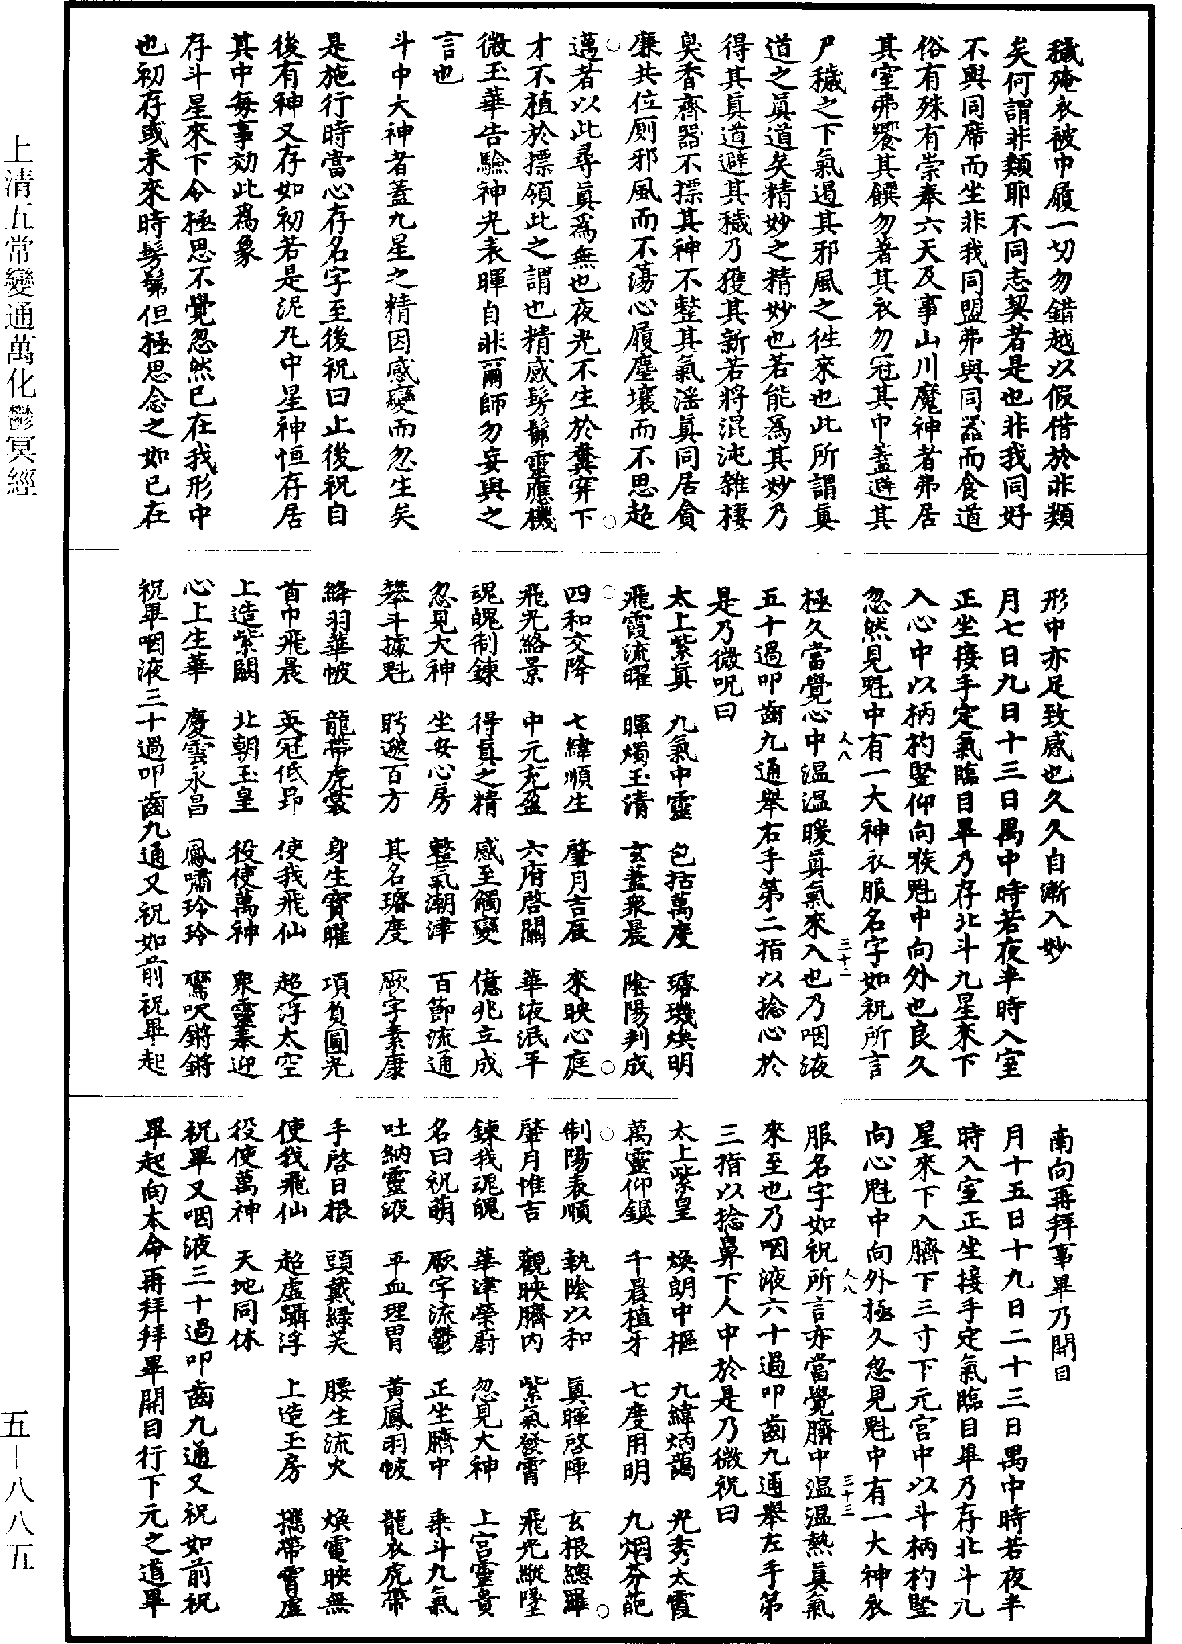 穢殗衣被巾履一切勿錯越以假借於非類
矣何謂非類耶不同志契者是也非我同好
不與同席而坐非我同盟弗與同器而食道
俗有殊有崇奉六天及事山川魔神者弗居
其室弗饗其饌勿著其衣勿冠其巾蓋避其
尸穢之下氣遏其邪風之往來也此所謂真
道之真道矣精妙之精妙也若能為其妙乃
得其真道避其穢乃獲其新若將混沌雜棲
臭香齋器不摽其神不整其氣滛真同居貪
廉共位厠邪風而不蕩心履塵壤而不思超
邁者以此尋真為無也夜光不生於糞穽下
才不植於摽領此之謂也精感髣髴靈應機
微玉華告驗神光表暉自非爾師勿妄與之
言也
斗中大神者蓋九星之精因感變而忽生矣
是施行時當心存名字至後祝曰止後祝自
後有神又存如初若是泥丸中星神恒存居
其中每事効此爲象
存斗星來下令極思不覺忽然已在我形中
也初存或未來時髣髴但極思念之如已在
形中亦足致感也久久自漸入妙
月七日九日十三日禺中時若夜半時入室
正坐接手定氣臨目畢乃存北斗九星來下
入心中以柄杓竪仰向喉魁中向外也良久
忽然見魁中有一大神衣服名字如祝所言
極久當覺心中温温暖真氣來入也乃咽液
五十過叩齒九通舉右手第二指以捻心於
是乃微呪曰
太上紫真 九氣中靈 包括萬度 璿璣煥明
飛霞流曜 暉燭玉清 玄蓋衆晨 陰陽判成
四和交降 七緯順生 肇月吉辰 來映心庭
飛光絡景 中元充盈 六府啓關 華液泯平
魂魄制鍊 得真之精 感至觸變 億兆立成
忽見大神 坐安心房 整氣潮津 百節流通
攀斗據魁 眄遬百方 其名璿度 厥字素康
絳羽華帔 龍帶虎裳 身生寶曜 項負圓光
首巾飛晨 英冠低昂 使我飛仙 超浮太空
上造紫闕 北朝玉皇 役使萬神 衆靈奉迎
心上生華 慶雲永昌 鳳嘯玲玲 鸞吹鏘鏘
祝畢咽液三十過叩齒九通又祝如前祝畢起
南向再拜事畢乃開目
月十五日十九日二十三日禺中時若夜半
時入室正坐接手定氣臨目畢乃存北斗九
星來下入臍下三寸下元宫中以斗柄杓竪
向心魁中向外極久忽見魁中有一大神衣
服名字如祝所言亦當覺臍中温温熱真氣
來至也乃咽液六十過叩齒九通舉左手第
三指以捻鼻下人中於是乃微祝曰
太上紫皇 煥朗中樞 九緯炳藹 光秀太霞
萬靈仰鎮 千晨植牙 七度用明 九烟芬葩
制陽表順 執陰以和 真暉啓陣 玄根總羅
肇月惟吉 觀映臍内 紫氣發霄 飛光縱墜
鍊我魂魄 華津榮蔚 忽見大神 上宫靈貴
名曰祝萌 厥字流鬱 正坐臍中 乘斗九氣
吐納靈液 平血理胃 黄鳳羽帔 龍衣虎帶
手啓日根 頭戴緑芙 腰生流火 煥電映無
使我飛仙 超虚躡浮 上造玉房 攜帶霄虚
役使萬神 天地同休
祝畢又咽液三十過叩齒九通又祝如前祝
畢起向本命再拜拜畢開目行下元之道畢
八八
三十二
八八
三十三
上清五常變通萬化鬱冥經
五—八八五